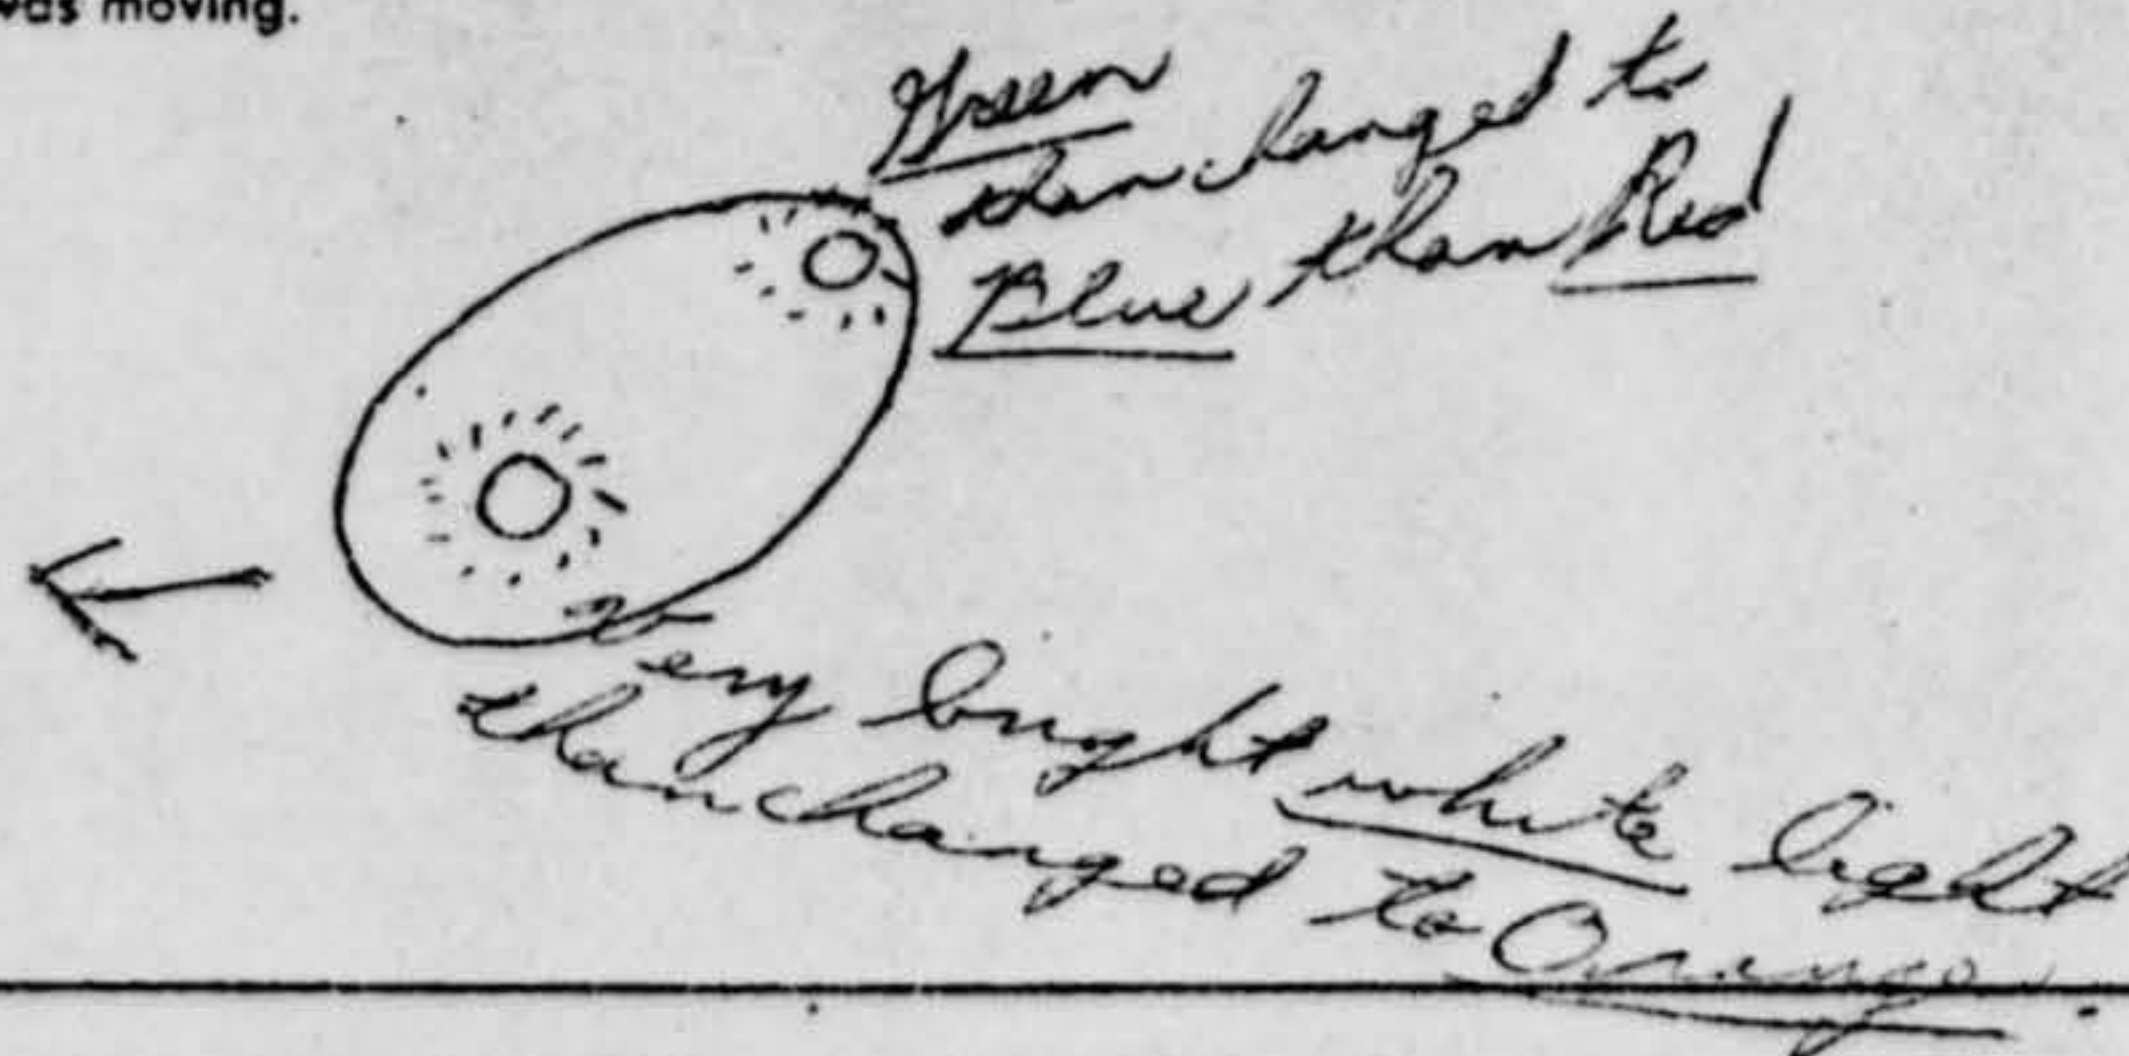 was moving.
Green
than changed to
Blue than Red
Very bright white light
than changed to Orange.